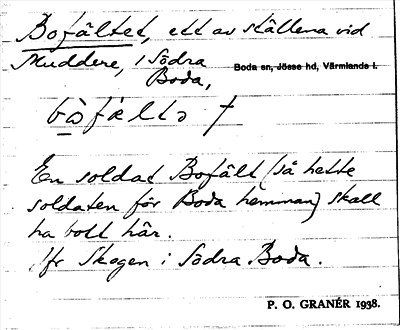 Bofältet, ett av ställena vid
Muddere, i Södra
Boda,
Boda sn, Jösse hd, Värmlands l.
bòfæltə †
En soldat Bofält (så hette
soldaten för Boda hemman) skall
ha bott här.
Jfr Skogen i Södra Boda.
P. O. GRANÉR 1938.